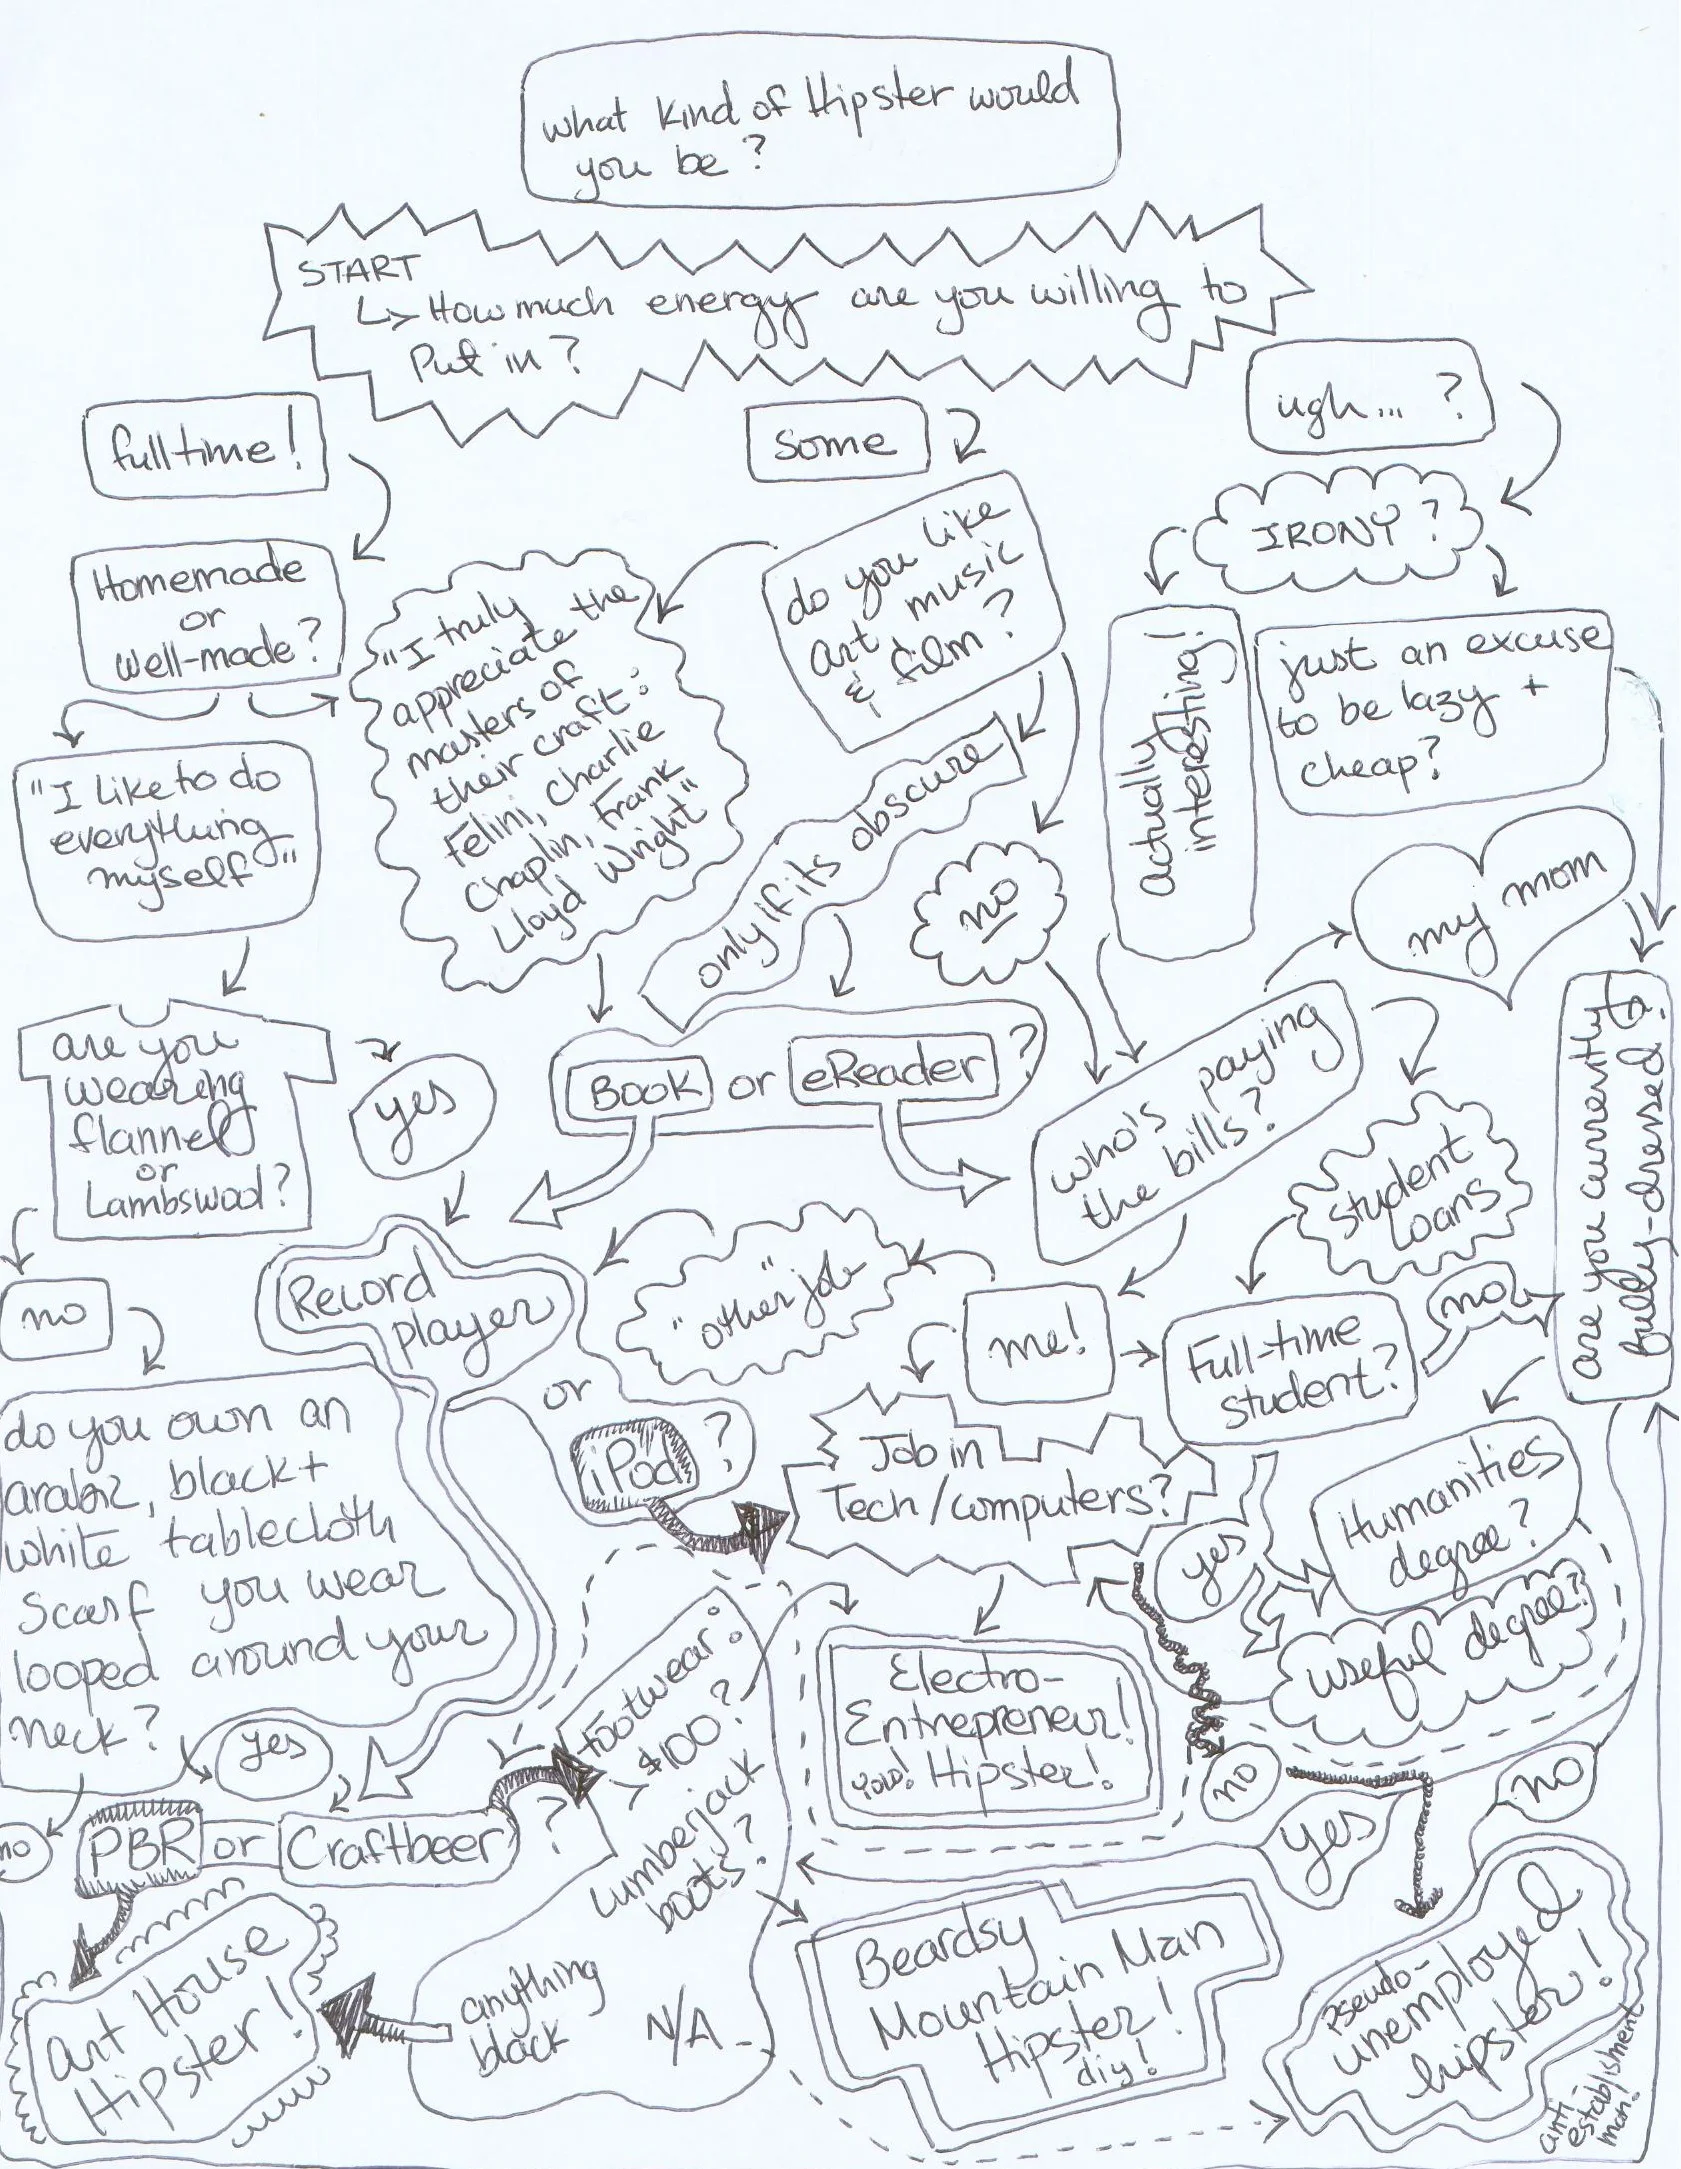 what kind of Hipster would
you be?
START
How much energy are you willing to
Put in?
full time!
some
ugh... ?
Homemade
or
well-made?
"I truly
appreciate the
masters of
their craft:
Felini, Charlie
Chaplin, Frank
Lloyd Wright"
do you like
art music
& film?
IRONY?
actually
interesting!
just an excuse
to be lazy +
cheap?
"I like to do
everything
myself"
only if its obscure
no
my mom
are you
wearing
flannel
or
Lambswool?
yes
Book or eReader?
who's paying
the bills?
student
Loans
are you currently
fully-dressed?
no
Record
player
or
iPod?
"other" job
me!
Full-time
student?
no
do you own an
arabic, black +
white tablecloth
scarf you wear
looped around your
neck?
Job in
Tech/computers?
yes
Humanities
degree?
useful degree?
yes
no
PBR or Craftbeer?
Footwear:
> $100?
Lumberjack
boots?
anything
black
N/A
Electro-
Entrepreneur!
yolo! Hipster!
no
yes
no
Art House
Hipster!
Beardsy
Mountain Man
Hipster!
diy!
Pseudo-
unemployed
hipster!
anti
establishment
man!